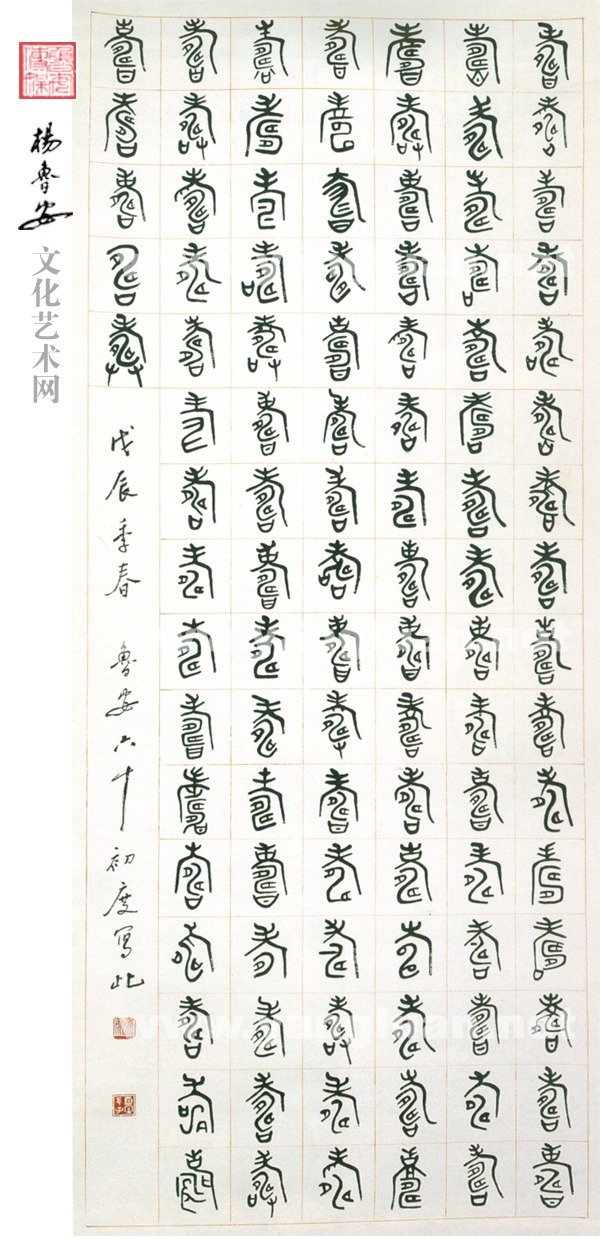 楊魯安
文化艺术网
壽壽壽壽壽壽壽壽壽壽壽壽壽壽壽壽
壽壽壽壽壽壽壽壽壽壽壽壽壽壽壽壽
壽壽壽壽壽壽壽壽壽壽壽壽壽壽壽壽
壽壽壽壽壽壽壽壽壽壽壽壽壽壽壽壽
壽壽壽壽壽壽壽壽壽壽壽壽壽壽壽壽
壽壽壽壽壽壽壽壽壽壽壽壽壽壽壽壽
壽壽壽壽壽
戊辰季春 魯安六十初度寫此